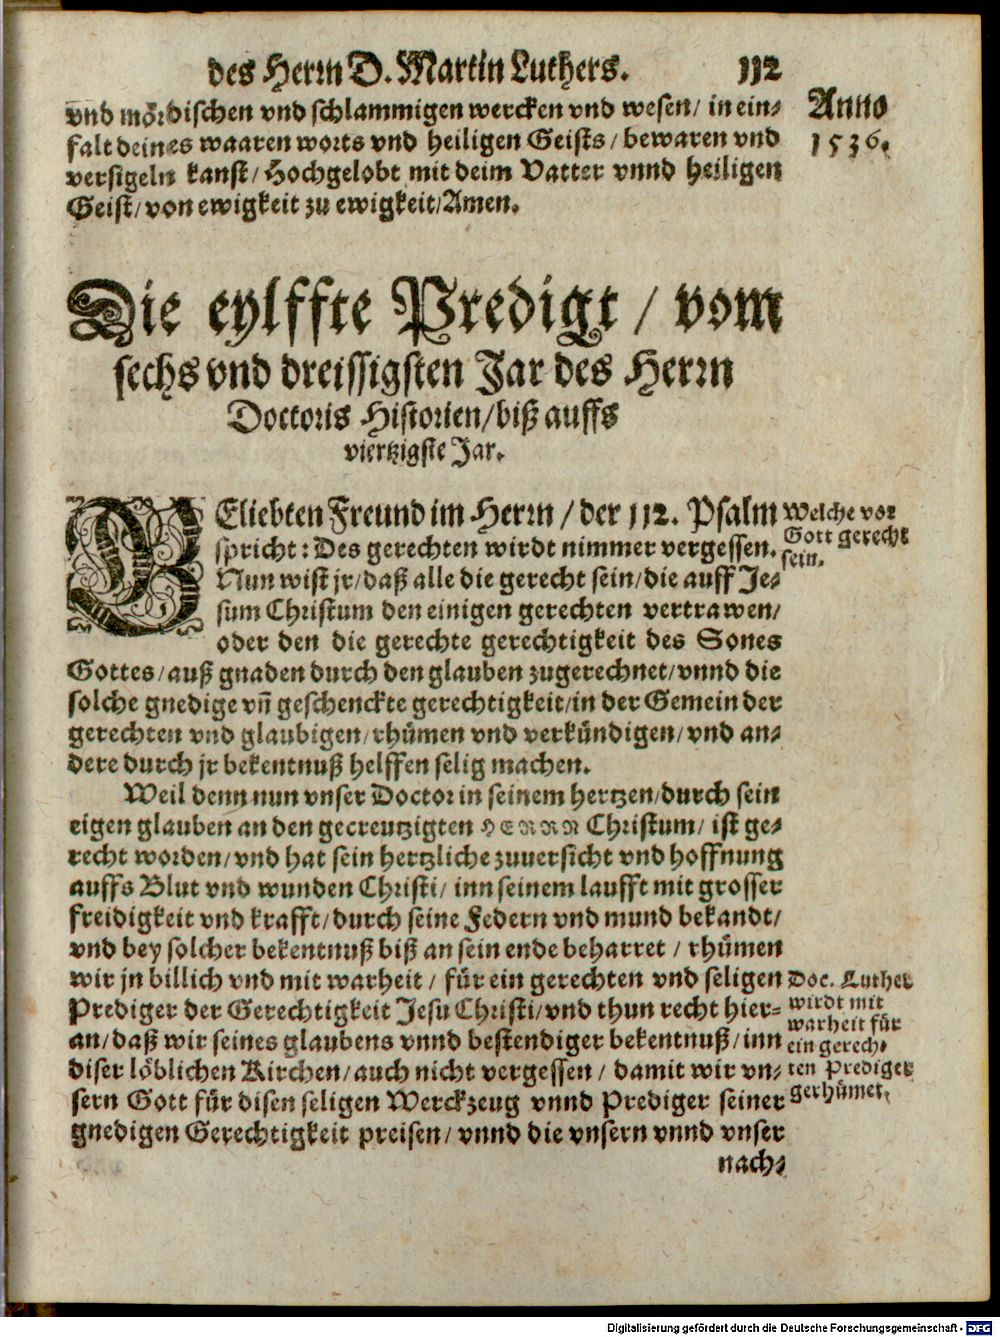 des Herrn D. Martin Luthers. 112
vnd mördischen vnd schlammigen wercken vnd wesen/ in ein⸗
falt deines waaren worts vnd heiligen Geists/ bewaren vnd
versigeln kanst/ Hochgelobt mit deim Vatter vnnd heiligen
Geist/ von ewigkeit zu ewigkeit/ Amen.
Anno
1536.
Die eylffte Predigt/ vom
sechs vnd dreissigsten Jar des Herrn
Doctoris Historien/ biß auffs
viertzigste Jar.
GEliebten Freund im Herrn/ der 112. Psalm
spricht: Des gerechten wirdt nimmer vergessen.
Nun wist jr/ daß alle die gerecht sein/ die auff Je⸗
sum Christum den einigen gerechten vertrawen/
oder den die gerechte gerechtigkeit des Sones
Gottes/ auß gnaden durch den glauben zugerechnet/ vnnd die
solche gnedige vn̄ geschenckte gerechtigkeit/ in der Gemein der
gerechten vnd glaubigen/ rhümen vnd verkündigen/ vnd an⸗
dere durch jr bekentnuß helffen selig machen.
Welche vor
Gott gerecht
sein.
Weil denn nun vnser Doctor in seinem hertzen/ durch sein
eigen glauben an den gecreutzigten HERRN Christum/ ist ge⸗
recht worden/ vnd hat sein hertzliche zuuersicht vnd hoffnung
auffs Blut vnd wunden Christi/ inn seinem laufft mit grosser
freidigkeit vnd krafft/ durch seine Federn vnd mund bekandt/
vnd bey solcher bekentnuß biß an sein ende beharret/ rhümen
wir jn billich vnd mit warheit/ für ein gerechten vnd seligen
Prediger der Gerechtigkeit Jesu Christi/ vnd thun recht hier⸗
an/ daß wir seines glaubens vnnd bestendiger bekentnuß/ inn
diser löblichen Kirchen/ auch nicht vergessen/ damit wir vn⸗
sern Gott für disen seligen Werckzeug vnnd Prediger seiner
gnedigen Gerechtigkeit preisen/ vnnd die vnsern vnnd vnser
nach⸗
Doc. Luther
wirdt mit
warheit für
ein gerech⸗
ten Prediger
gerhümet.
Digitalisierung gefördert durch die Deutsche Forschungsgemeinschaft - DFG